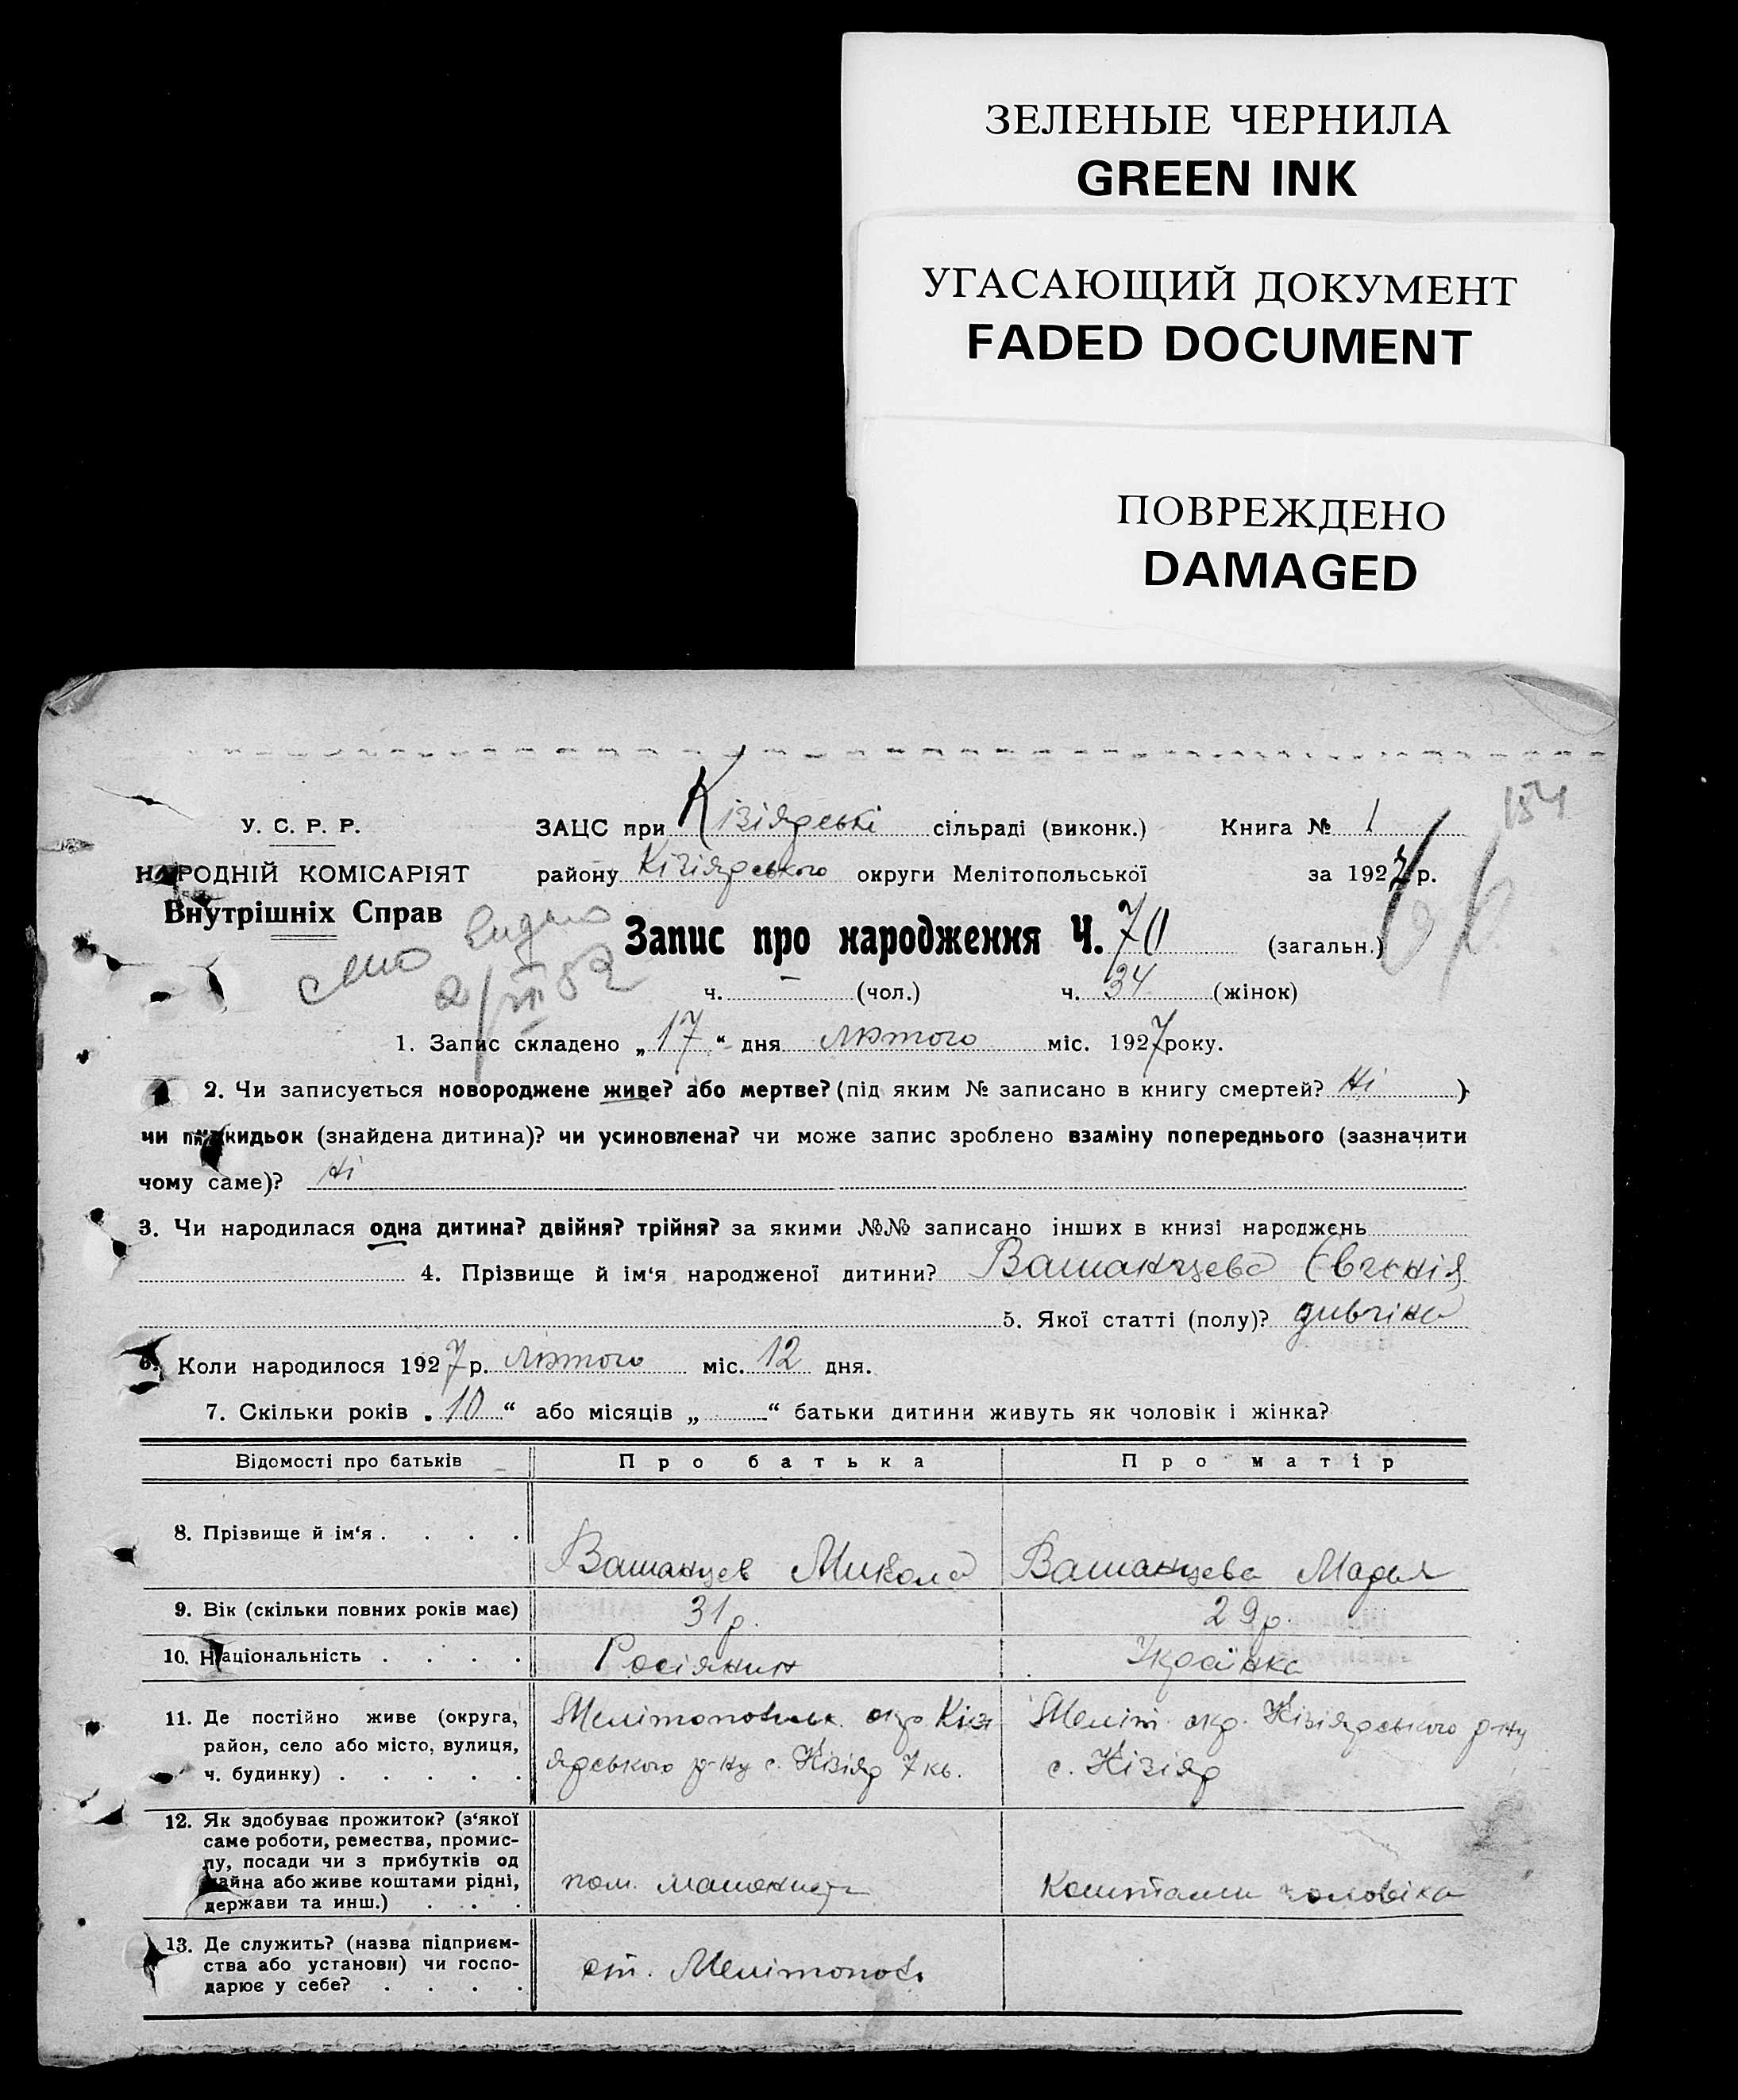 ЗЕЛЕНЫЕ ЧЕРНИЛА
GREEN INK
УГАСАЮЩИЙ ДОКУМЕНТ
FADED DOCUMENT
ПОВРЕЖДЕНО
DAMAGED
154
У. С. Р. Р.
НАРОДНІЙ КОМІСАРІЯТ
Внутрішніх Справ
ЗАЦС при Кізіярські сільраді (виконк.) Книга № 1
району Кізіярського округи Мелітопольської за 1927 р.
Запис про народження Ч. 70 (загальн.)
2/III 52
ч. – (чол.) ч. 34 (жінок)
1. Запис складено „17“ дня лютого міс. 1927 року.
2. Чи записується новороджене живе? або мертве? (під яким № записано в книгу смертей? Ні )
чи підкидьок (знайдена дитина)? чи усиновлена? чи може запис зроблено взаміну попереднього (зазначити
чому саме)? Ні
3. Чи народилася одна дитина? двійня? трійня? за якими №№ записано інших в книзі народжень
4. Прізвище й ім'я народженої дитини? Вашанцева Євгенія
5. Якої статті (полу)? дивчіна
6. Коли народилося 1927 р. лютого міс. 12 дня.
7. Скільки років „10“ або місяців „ “ батьки дитини живуть як чоловік і жінка?
Відомості про батьків Про батька Про матір
8. Прізвище й ім'я . . . . Вашанцев Микола Вашанцева Марья
9. Вік (скільки повних років має) 31 р. 29 р.
10. Національність . . . . Росіянин Українка
11. Де постійно живе (округа,
район, село або місто, вулиця,
ч. будинку) . . . . .
Мелітопольск. окр. Кізі
ярського р-ну с. Кізіяр 7 кв.
Меліт. окр. Кізіярського р-ну
с. Кізіяр
12. Як здобуває прожиток? (з'якої
саме роботи, ремества, промис-
лу, посади чи з прибутків од
майна або живе коштами рідні,
держави та инш.) . . .
пом. машиниста
Коштами чоловіка
13. Де служить? (назва підприєм-
ства або установи) чи госпо-
дарює у себе? . . . .
ст. Мелітополь